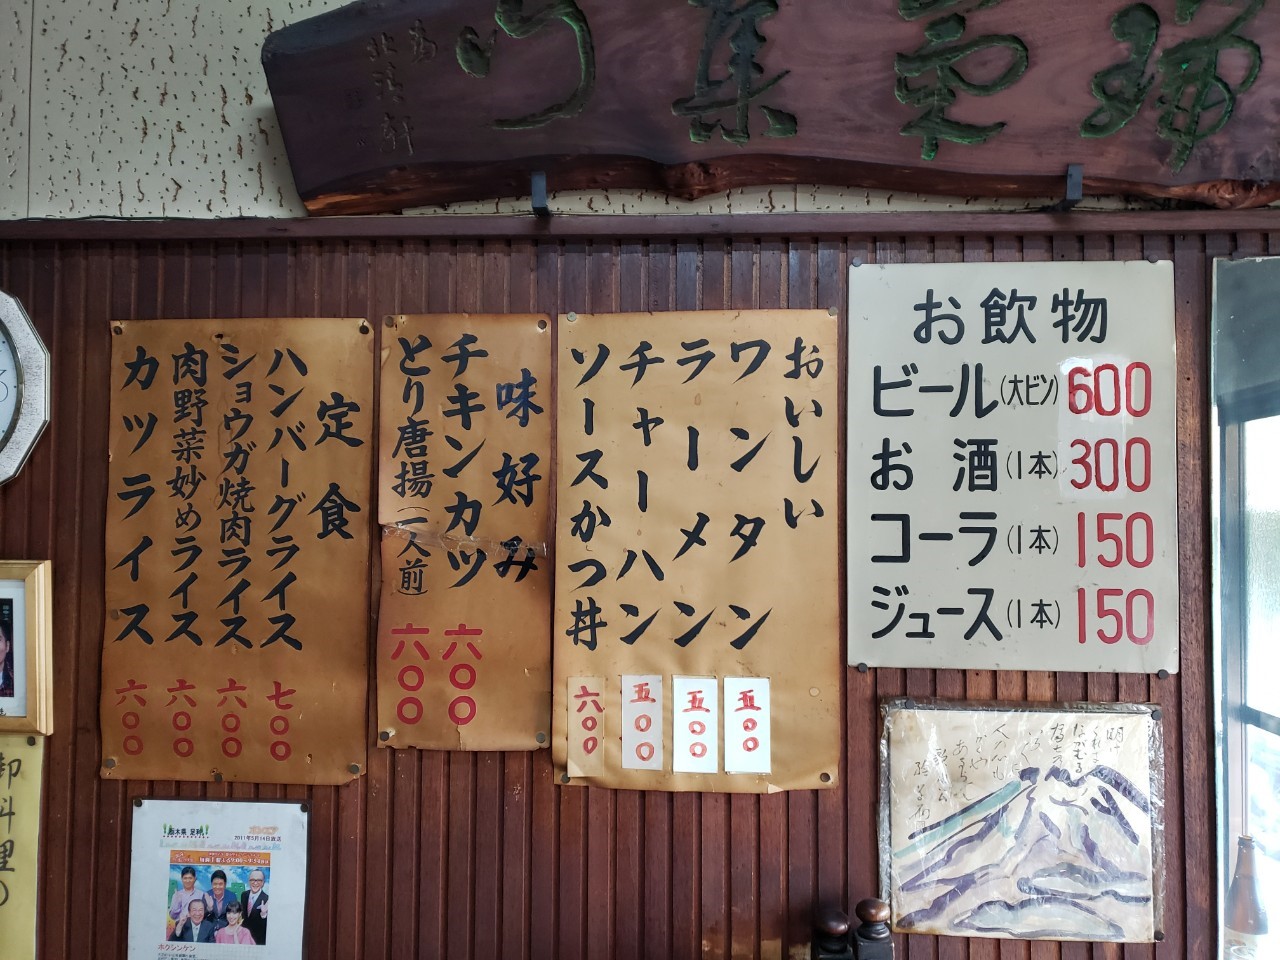 お飲物
ビール(大ビン)600
お酒(1本)300
コーラ(1本)150
ジュース(1本)150
おいしい
ワンタン 五〇〇
ラーメン 五〇〇
チャーハン 五〇〇
ソースかつ丼 六〇〇
味好み
チキンカツ 六〇〇
とり唐揚(一人前) 六〇〇
定食
ハンバーグライス 七〇〇
ショウガ焼肉ライス 六〇〇
肉野菜妙めライス 六〇〇
カツライス 六〇〇
御料理の
ホクシンケン